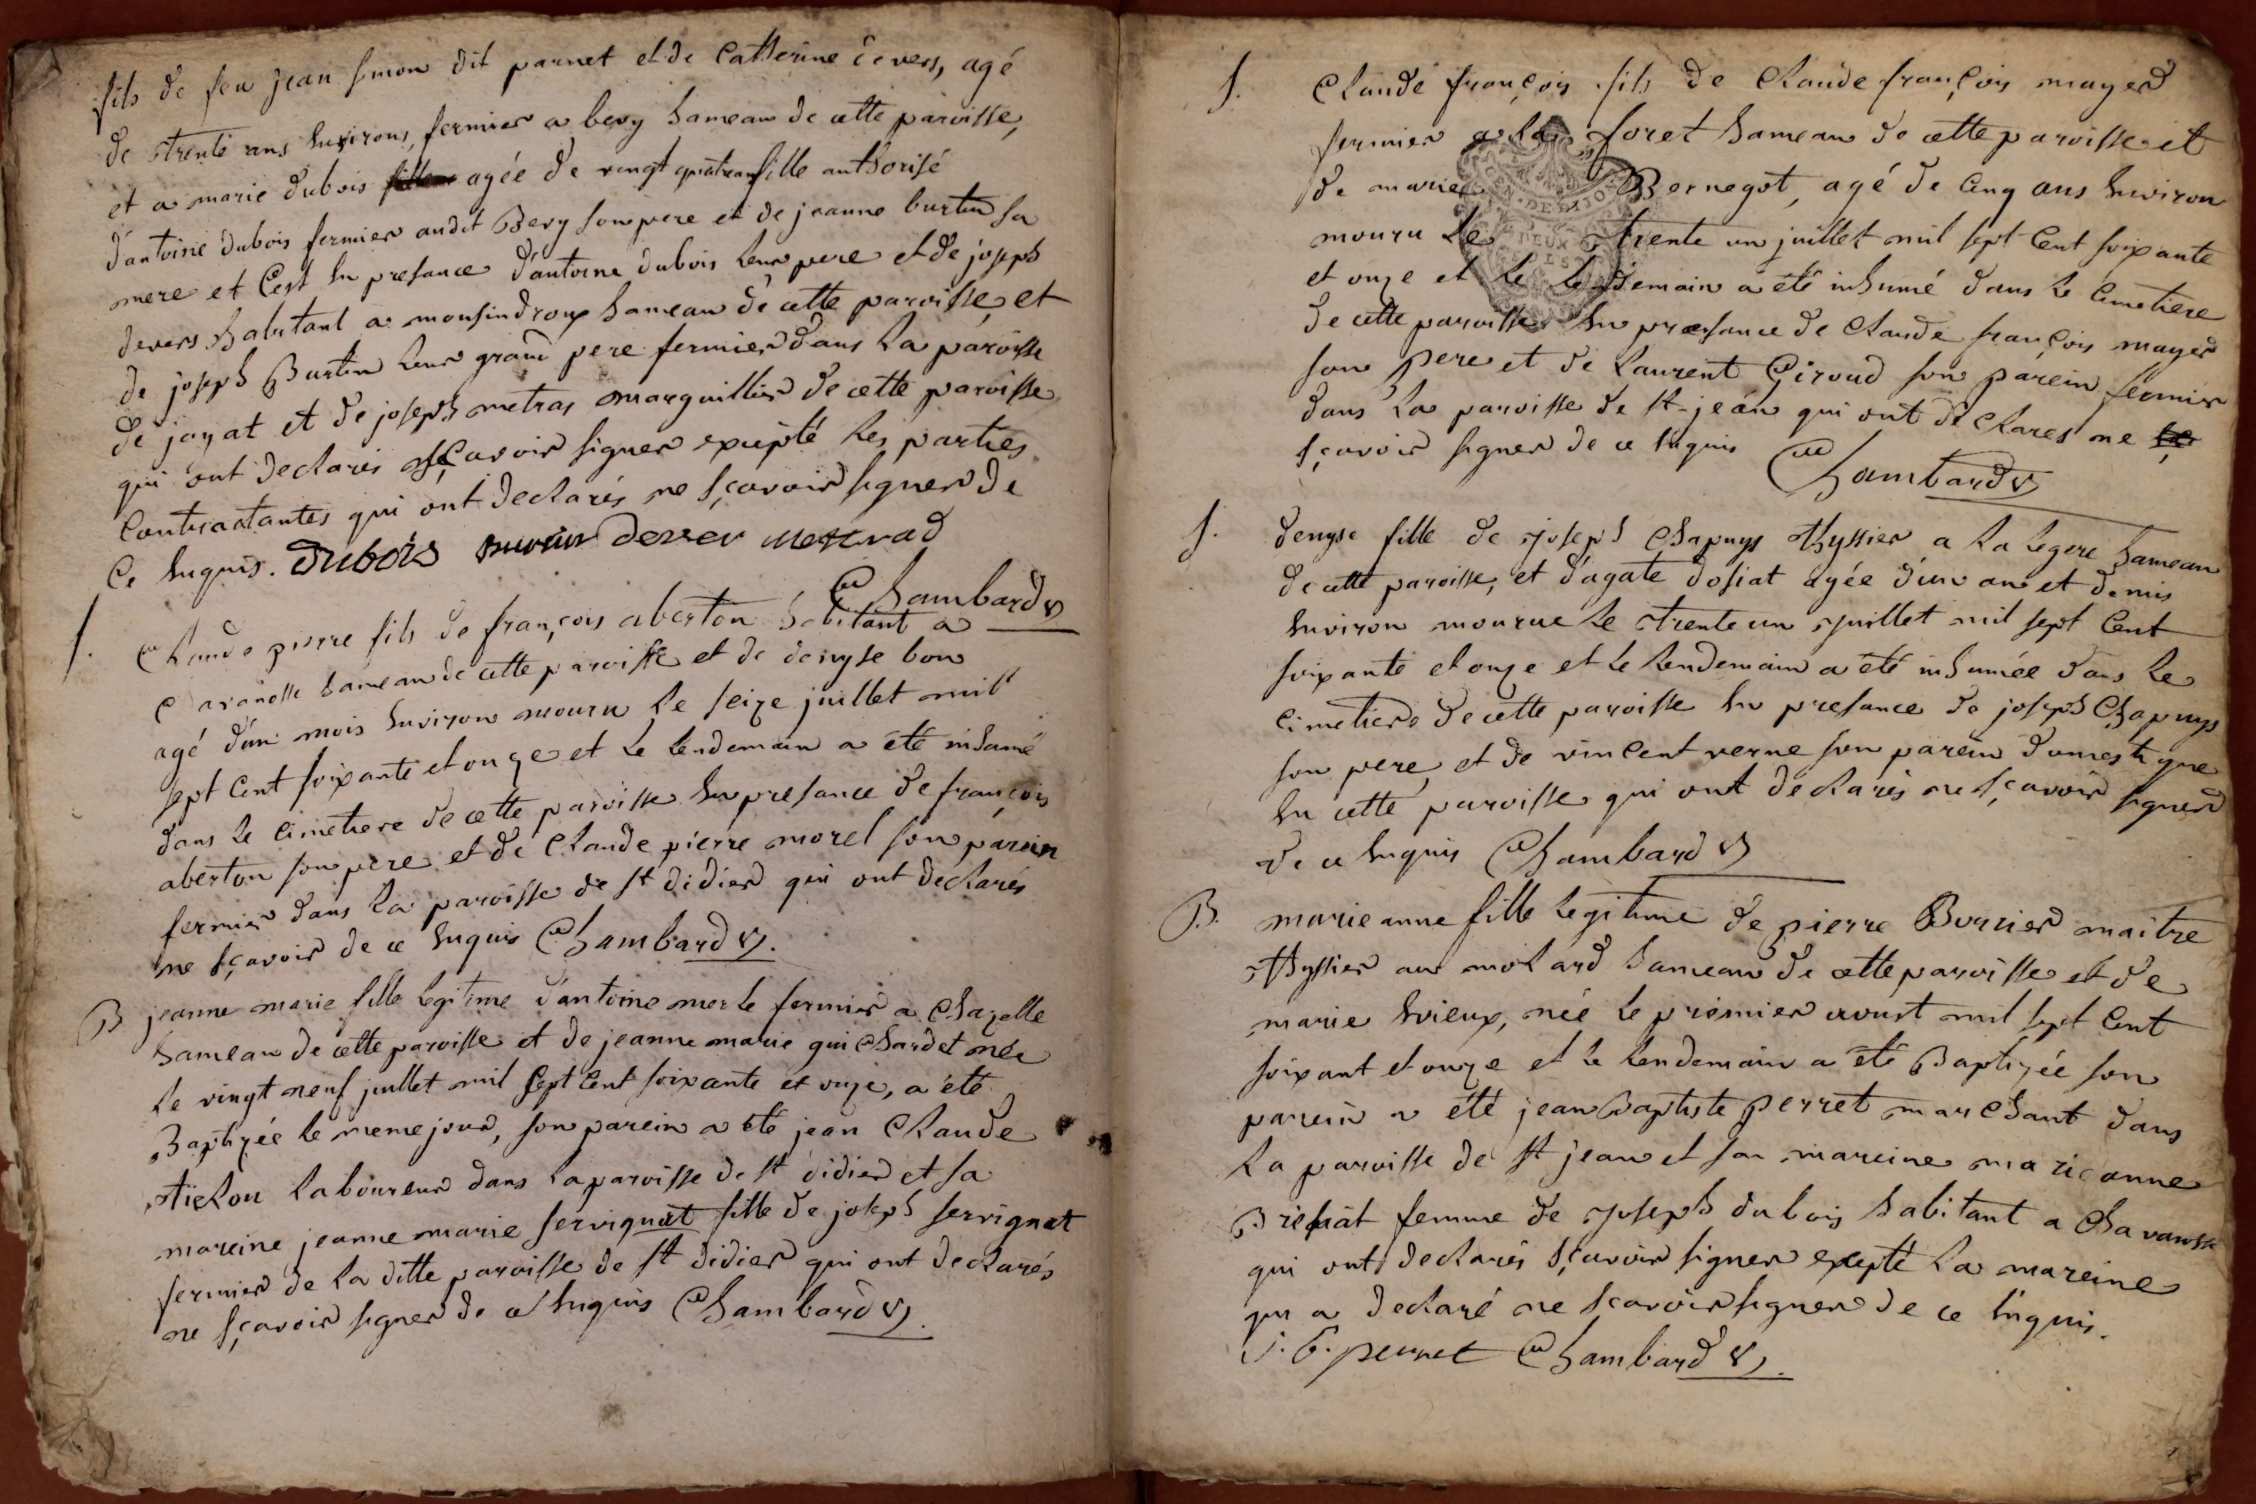 fils de feu jean simon dit parnet et de Catherine devers, agé
de trente ans environs, fermier a bevy hameau de cette paroisse,
et a marie dubois agée de vingt quatreans fille authorisé
d'antoine dubois fermier audit Bevy son pere et de jeanne burtin sa
mere et c'est en presance d'antoine dubois leur pere et de joseph
devers habitant a monsindroux hameau de cette paroisse, et
de joseph Burtin leur grand pere fermier dans la paroisse
de jayat et de joseph metras marguillier de cette paroisse
qui ont declarés sçavoir signer excepté les parties
Contractantes qui ont declarés ne sçavoir signer de
Ce enquis. Dubois dever metrad
Chambard v
S. Claude pierre fils de françois aberton habitant a
Cavanosse hameau de cette paroisse et de denyse bon
agé d'un mois environ mouru le seize juillet mil
sept Cent soixante et onze et le lendemain a été inhumé
dans le Cimetiere de cette paroisse en presance de françois
aberton son pere et de Claude pierre morel son parein
fermier dans la paroisse de st didier qui ont declarés
ne sçavoir de ce enquis Chambard v.
B jeanne marie fille legitime d'antoine merle fermier a Chazelle
hameau de cette paroisse et de jeanne marie guichardet née
le vingt neuf juillet mil sept Cent soixante et onze, a été
Baptizée le meme jour, son parein a été jean Claude
tielon laboureur dans la paroisse de st didier et sa
mareine jeanne marie servignat fille de joseph servignat
fermier de la ditte paroisse de st didier qui ont declarés
ne sçavoir signer de ce enquis Chambard v.
S. Claude françois fils de Claude françois mayer
fermier a la foret hameau de cette paroisse et
de marie Bernegot, agé de Cinq ans environ
mouru le trente un juillet mil sept Cent soixante
et onze et le lendemain a été inhumé dans le Cimetiere
de cette paroisse en præsance de Claude françois mayer
son pere et de laurent Giroud son parein fermier
dans la paroisse de st-jean qui ont declarés ne
sçavoir signer de ce enquis Chambard v
S. denyse fille de joseph Chapuys thyssier a la legere hameau
de cette paroisse, et d'agate dosiat agée d'un an et demis
environ mourue le trente un juillet mil sept Cent
soixante et onze et le lendemain a été inhumée dans le
Cimetiere de cette paroisse en presance de joseph Chapuys
son pere et de vincent verne son parein domestique
en cette paroisse qui ont declarés ne sçavoir signer
de ce enquis Chambard v
B. marie anne fille legitime de pierre Burrier maitre
thyssier au molard hameau de cette paroisse et de
marie evieux, née le premier avoust mil sept Cent
soixant et onze et le lendemain a été Baptizée son
parein a été jean Baptiste perret marchant dans
la paroisse de st jean et sa mareine marieanne
femme de joseph dubois habitant a Chavanosse
qui ont declarés sçavoir signer excepté la mareine
qui a declaré ne sçavoir signer de ce enquis.
j. b. perret Chambard v.